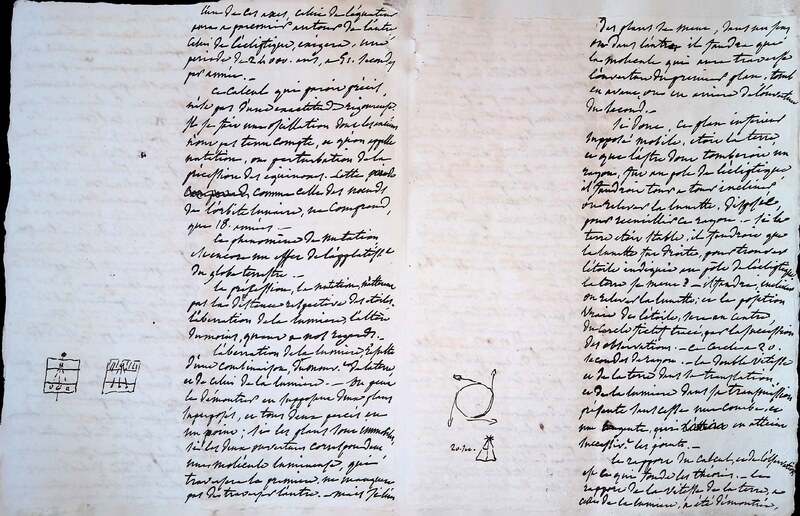 l'un de ces axes, celui de l'équateur
pour parcourir autour de l'autre
celui de l'écliptique, exigera, une
période de 26000. ans, a 51. secondes
par année. —
Ce Calcul qui paroit précis,
n'est pas d'une exactitude rigoureuse.
Il se fait une oscillation dont les anciens
n'ont pas tenu compte, et qu'on appelle
nutation, ou perturbation de la
précession des équinoxes. Cette
comme celle des nœuds
de l'orbite lunaire, ne comprend,
que 18. années. —
Ce phénomène de Nutation
est encore un effet de l'applatiss.t
du globe terrestre. —
la précession, la nutation, n'altèrent
pas la distance respective des étoiles.
l'aberration de la lumiere, l'altère
du moins, quant a nos regards. —
l'aberration de la lumiere, résulte
d'une combinaison, du mouv.t de la terre
et de celui de la lumière. — On peut
la démontrer en supposant deux plans
superposés, et tous deux percés en
un point; si les plans sont immobiles,
si les deux ouvertures correspondent,
une molécule lumineuse, qui
traverse la premiere, ne manquera
pas de traverser l'autre. — mais si l'un
des plans se meut, dans un sens
ou dans l'autre il faudra que
la molécule qui aura traversé
l'ouverture du premier plan, tombe
en avant, ou en arrière de l'ouverture
du second. —
Si donc, ce plan inférieur
supposé mobile, étoit la terre,
et que l'astre dont tomberoit un
rayon, fut au pole de l'écliptique
il faudroit tour a tour incliner
ou relever la lunette, disposée
pour recueillir ce rayon. — Si la
terre étoit stable, il faudroit que
la lunette fut droite, pour trouver
l'étoile indiquée au pole de l'écliptique
la terre se meut? — il faudra, incliner
ou relever la lunette; et la position
vraie de l'étoile, sera au centre
du cercle fictif tracé, par la succession
des observations. — Ce cercle a 20.
secondes de rayon. — la double vitesse
et de la terre dans sa translation,
et de la lumiere dans sa transmission
présente sans cesse une courbe, et
une tangente, qui en atteint
successiv.t les points. —
le rapport du calcul, et de l'observation
est ce qui fonde les théories. — le
rapport de la vitesse de la terre, a
celle de la lumiere, a été démontré,